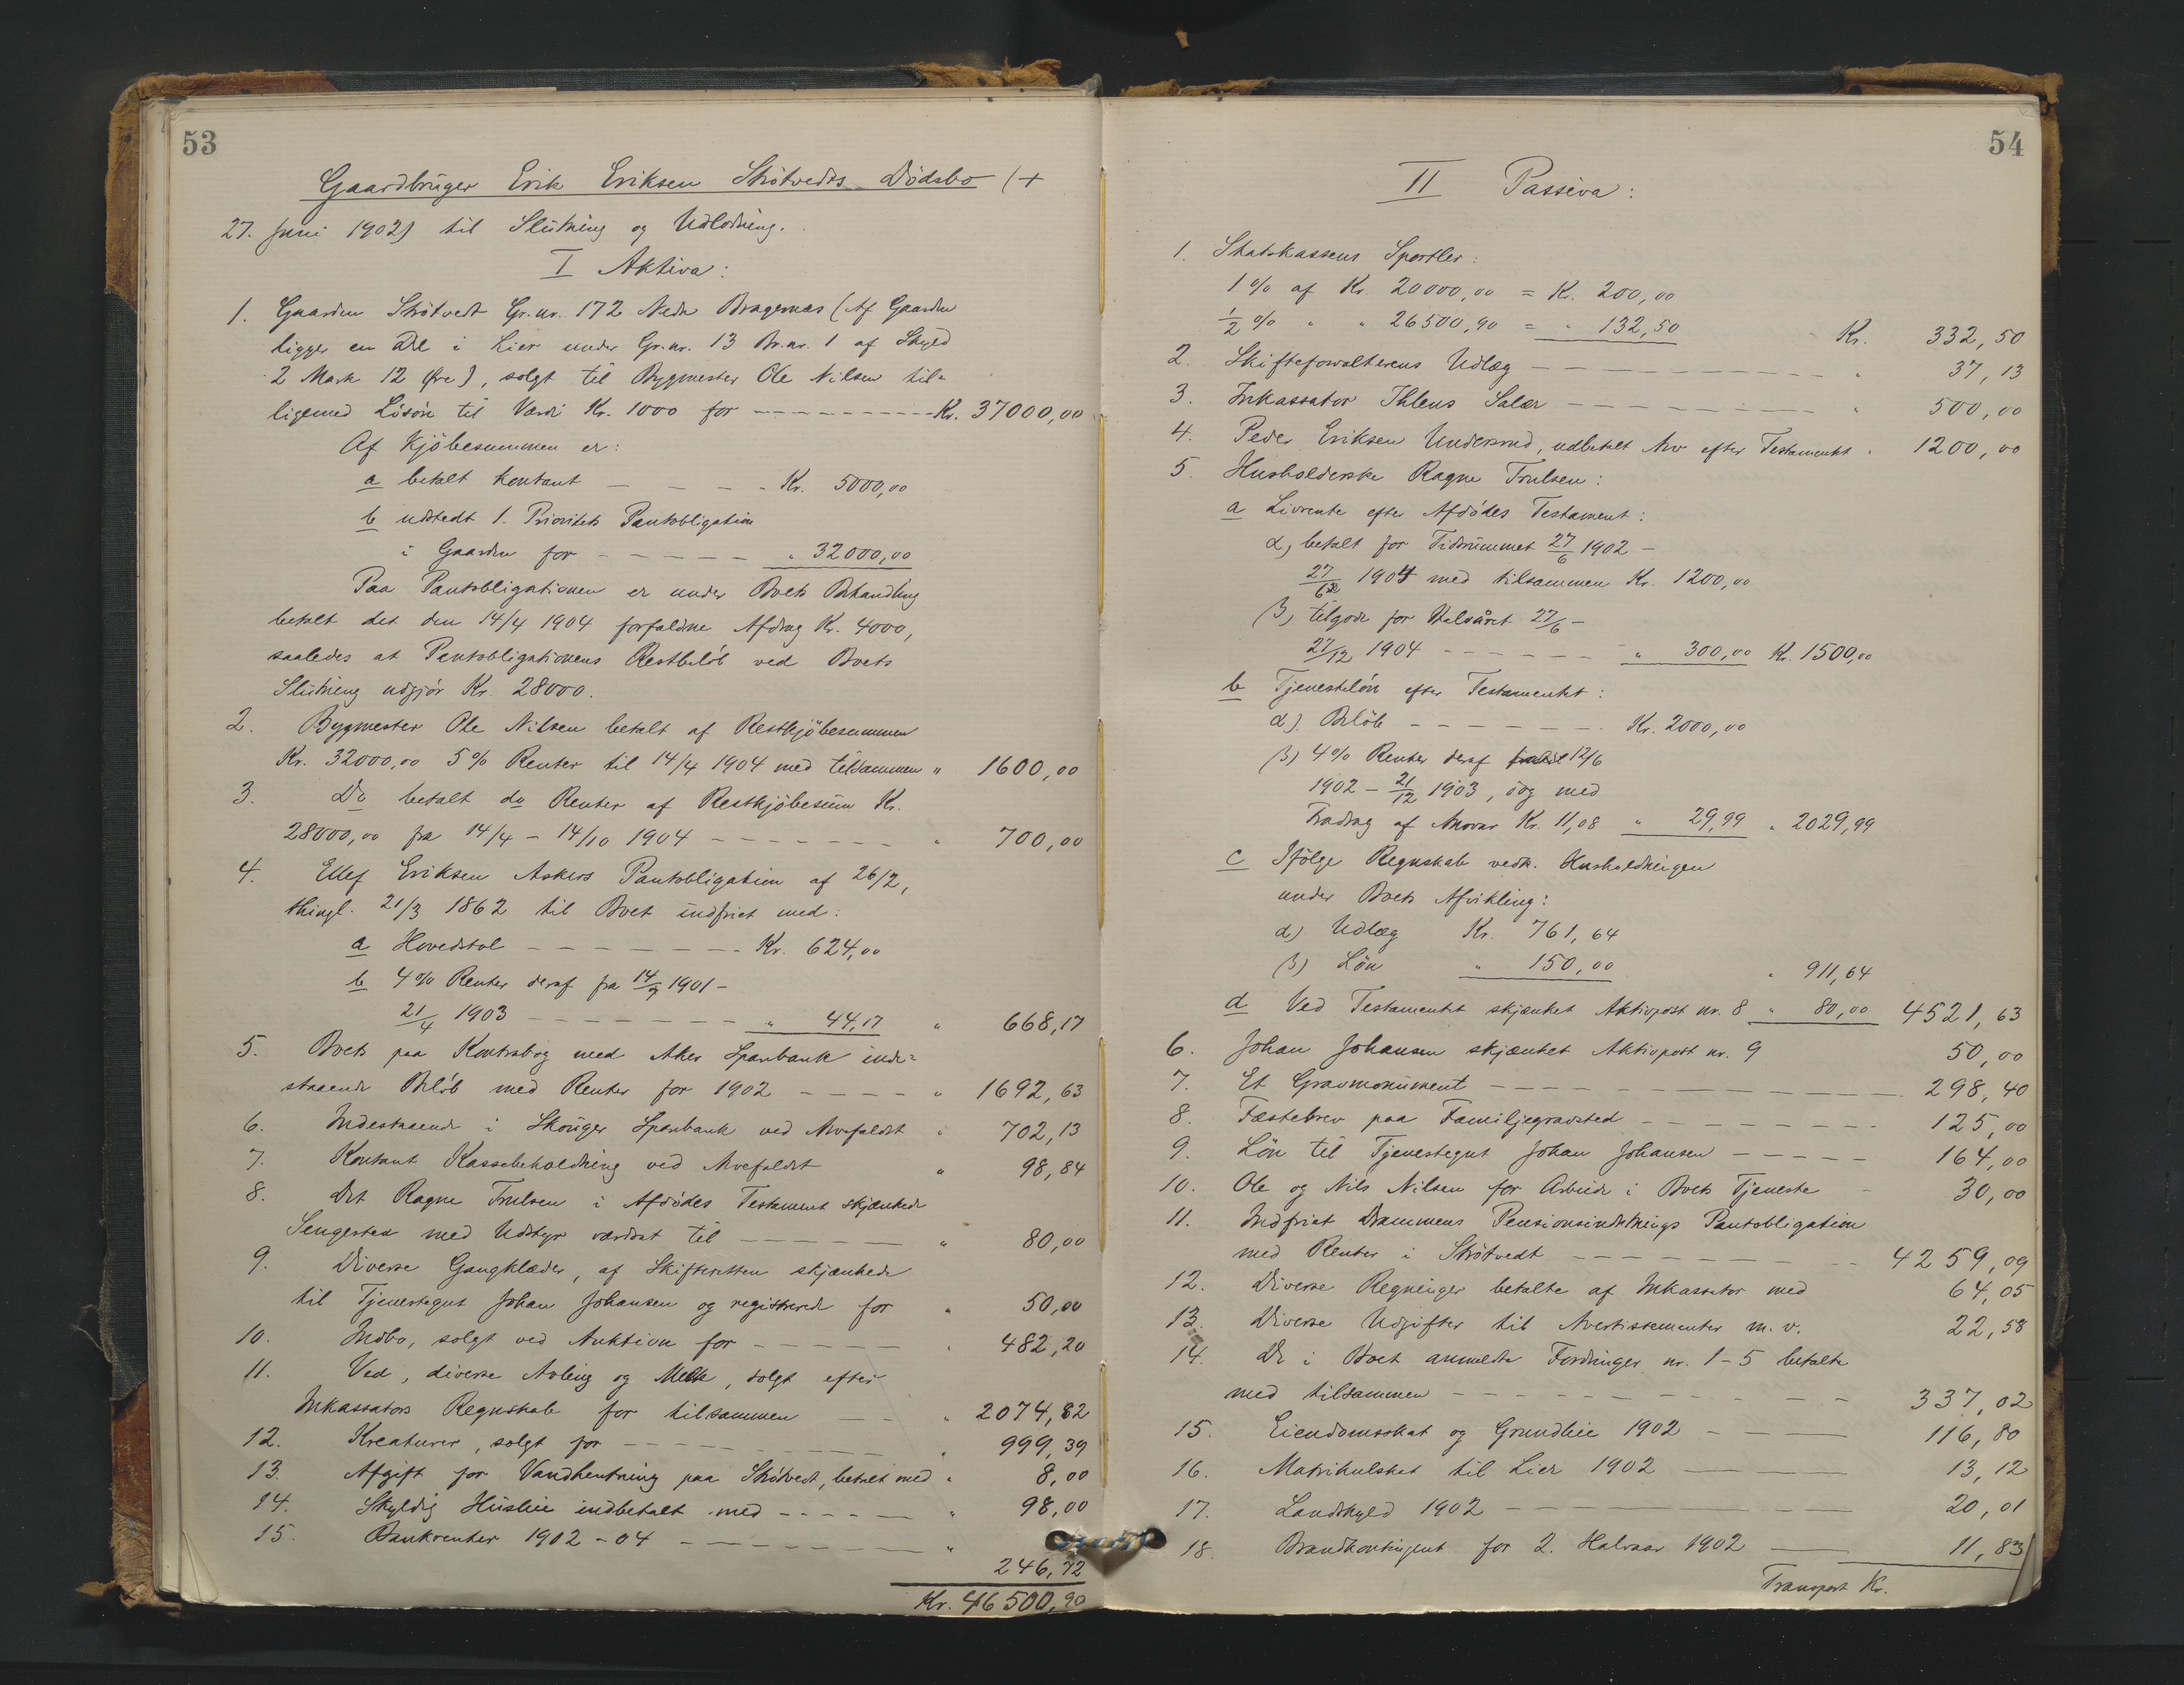 53
Gaardbruger Erik Eriksen Strötvedts Dödsbo (+
27. Juni 1902) til Slutning og Udlodning.
I Aktiva:
1. Gaarden Strötvedt Gr.nr. 172 Nedre Bragernæs (Af Gaarden
ligger en Del i Lier under Gr.nr. 13 Br.nr. 1 af Skyld
2 Mark 12 Øre), solgt til Bygmester Ole Nilsen til-
ligemed Lösöre til Værdi Kr. 1000 for - - - Kr. 37000,00
Af Kjöbesummen er:
a betalt kontant - - - - Kr. 5000,00
b udstedt 1. Prioritets Pantobligation
i Gaarden for - - - - - " 32000,00
Paa Pantobligationen er under Boets Behandling
betalt det den 14/4 1904 forfaldne Afdrag Kr. 4000,
saaledes at Pantobligationens Restbelöb ved Boets
Slutning udgjör Kr. 28000.
2. Bygmester Ole Nilsen betalt af Restkjöbesummen
Kr. 32000,00 5% Renter til 14/4 1904 med tilsammen " 1600,00
3. Do betalt do Renter af Restkjöbesum Kr.
28000,00 fra 14/4 - 14/10 1904 - - - - - - " 700,00
4. Ellef Eriksen Askers Pantobligation af 26/2,
thingl. 21/3 1862 til Boet indfriet med:
a Hovedstol - - - - - - - Kr. 624,00
b 4% Renter deraf fra 14/7 1901 -
21/4 1903 - - - - - - - " 44,17 " 668,17
5. Boets paa Kontrabog med Aker Sparebank inde-
staaende Belöb med Renter for 1902 - - - - " 1692,63
6. Indestaaende i Skouger Sparebank ved Arvefaldet " 702,13
7. Kontant Kassebeholdning ved Arvefaldet " 98,84
8. Det Ragne Trulsen i Afdödes Testament skjænkede
Sengested med Udstyr værdsat til - - - - - - " 80,00
9. Diverse Gangklæder, af Skifteretten skjænkede
til Tjenestegut Johan Johansen og registrerede for " 50,00
10. Indbo, solgt ved Auktion for - - - - - " 482,20
11. Ved, diverse Avling og Melk, solgt efter
Inkassators Regnskab for tilsammen - - " 2074,82
12. Kreaturer, solgt for - - - - - - - " 999,39
13. Afgift for Vandhentning paa Strötvedt, betalt med " 8,00
14. Skyldig Husleie indbetalt med - - - - - " 98,00
15. Bankrenter 1902 - 04 - - - - - - "
246,72
Kr. 46500,90
54
II Passiva:
1. Statskassens Sportler:
1% af Kr. 20000,00 = Kr. 200,00
1/2 % " " 26500,90 = " 132,50 Kr. 332,50
2. Skifteforvalterens Udlæg - - - - - - - - - - " 37,13
3. Inkassator Ihlens Salær - - - - - - - - - " 500,00
4. Peder Eriksen Undersrud, udbetalt Arv efter Testamentet " 1200,00
5. Husholderske Ragne Trulsen:
a Livrente efter Afdödes Testament:
α) betalt for Tidsrummet 27/6 1902 -
27/6 1904 med tilsammen Kr. 1200,00
β) tilgode for Halvåret 27/6 -
27/12 1904 - - - - - - - " 300,00 Kr. 1500,00
b Tjenestelön efter Testamentet:
α). Belöb - - - - - - - Kr. 2000,00
β) 4% Renter deraf 12/6
1902 - 21/12 1903, dog med
Fradrag af Kr. 11,08 " 29,99 " 2029,99
c Ifölge Regnskab vedk. Husholdningen
under Boets Afvikling:
α) Udlæg Kr. 761,64
β) Lön " 150,00 " 911,64
d Ved Testamentet skjænket Aktivpost nr. 8 " 80,00 4521,63
6. Johan Johansen skjænket Aktivpost nr. 9 50,00
7. Et Gravmonument - - - - - - - - - - 298,40
8. Fæstebrev paa Familjegravsted - - - - - - - 125,00
9. Lön til Tjenestegut Johan Johansen - - - - - 164,00
10. Ole og Nils Nilsen for Arbeide i Boets Tjeneste - 30,00
11. Indfriet Drammens Pensionsindretnings Pantobligation
med Renter i Strötvedt - - - - - - - - 4259,09
12. Diverse Regninger betalte af Inkassator med 64,05
13. Diverse Udgifter til Avertissementer m.v. 22,58
14. De i Boet anmeldte Fordringer nr. 1-5 betalte
med tilsammen - - - - - - - - - - 337,02
15. Eiendomsskat og Grundleie 1902 - - - 116,80
16. Matrikulskat til Lier 1902 - - - 13,12
17. Landskyld 1902 - - - - - - 20,01
18. Brandkontingent for 2. Halvaar 1902 - 11,83
Transport Kr.